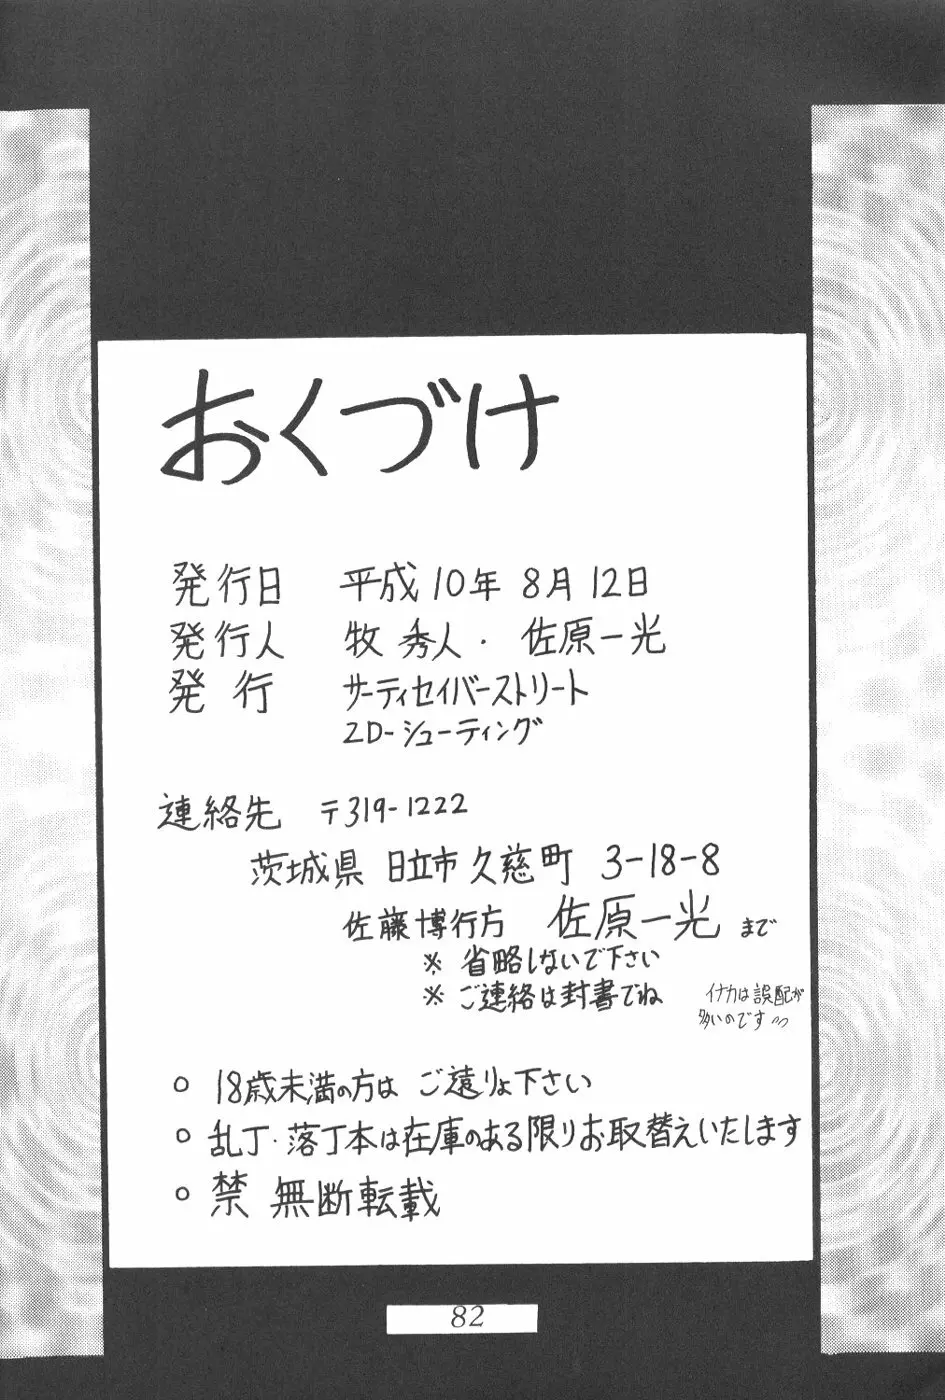 おくづけ
発行日 平成10年 8月12日
発行人 牧 秀人・佐原一光
発行 サーティセイバーストリート
2D-シューティング
連絡先 〒319-1222
茨城県 日立市久慈町 3-18-8
佐藤博行方 佐原一光 まで
※ 省略しないで下さい
※ ご連絡は封書でね
イナカは誤配が
多いのです
○ 18歳未満の方は ご遠りょ下さい
○ 乱丁・落丁本は在庫のある限りお取替えいたします
○ 禁 無断転載
82